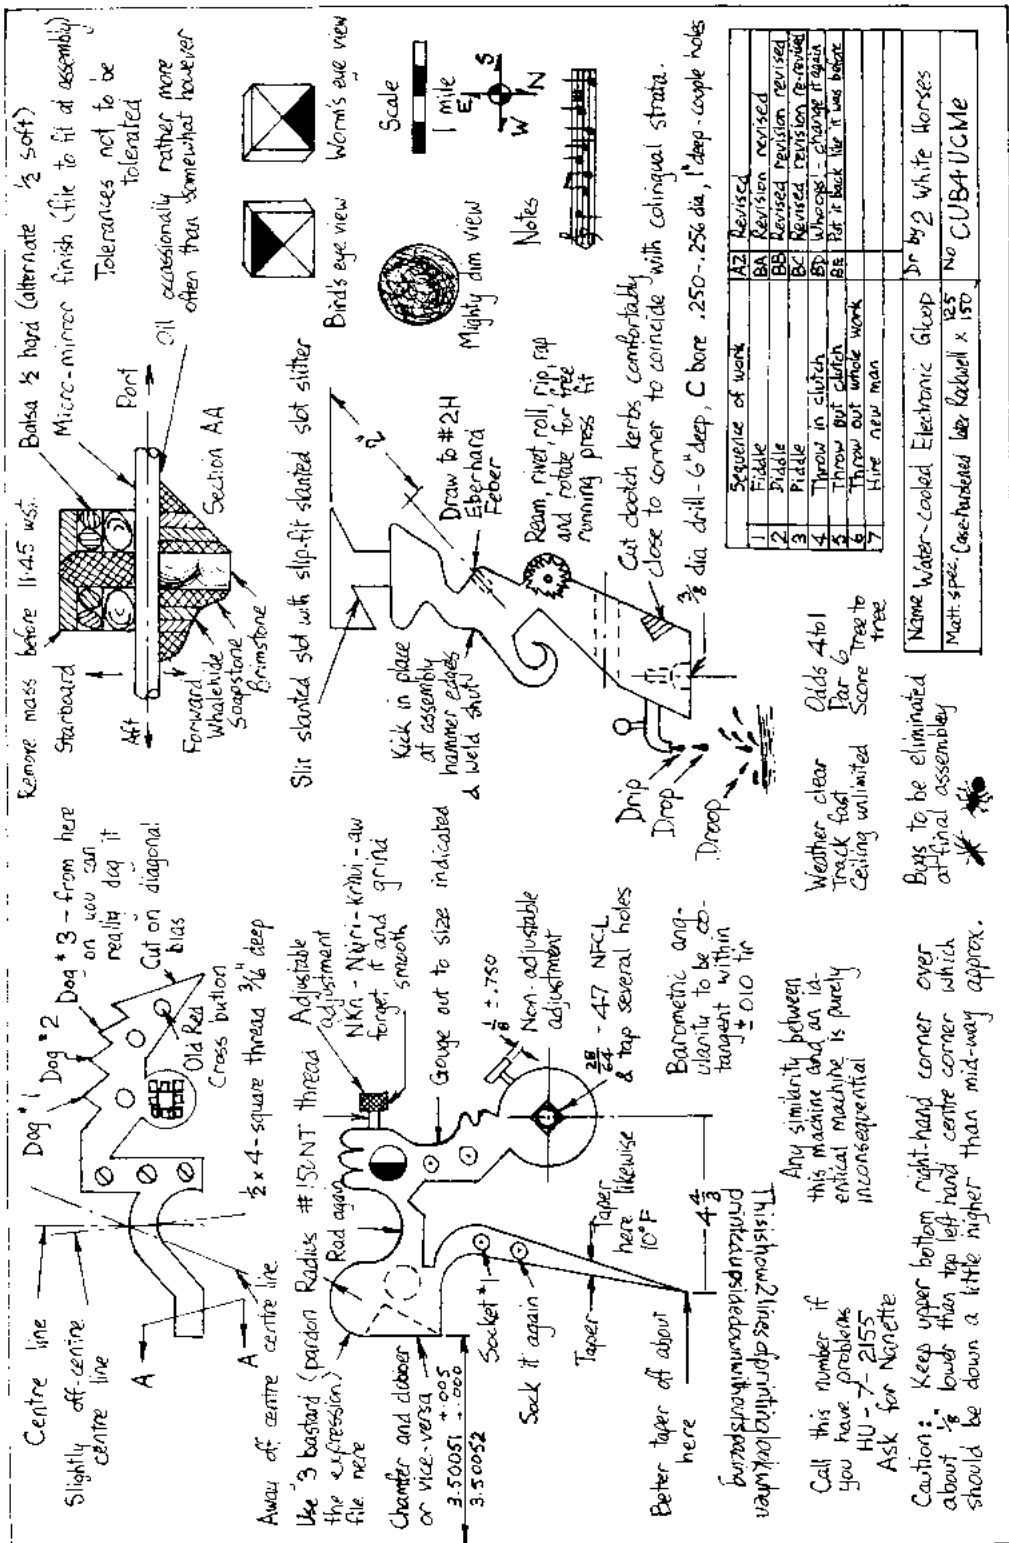 Centre line
Slightly off-centre
centre line
Dog #1
Dog #2
Dog #3 - from here
on you can
really dog it
Cut on diagonal
bias
Old Red
Cross button
A
A
Away off centre centre line
1/2 x 4 - square thread 3/16" deep
Use #3 bastard (pardon
the expression)
file here
Radius #150NT thread
Rad again
Adjustable
adjustment
forget it and grind
smooth
Gouge out to size indicated
1/8 ± .750
Non-adjustable
adjustment
28/64 - 47 NFCL
& tap several holes
Chamfer and
or vice-versa
3.50051 +.005 -.000
3.50052
Socket #1
Sock it again
Taper
Taper
here likewise
10°F
4 4/3
Better taper off about
here
Barometric ang-
ularity to be co-
tangent within
± .010 tir
Thisishow2linesofprintinglookwhen
printedupsidedownwithoutspacing
Any similarity between
this machine and an id-
entical machine is purely
inconsequential
Call this number if
you have problems
HU - 7 - 2155
Ask for Nanette
Caution: Keep upper bottom right-hand corner over
about 1/8" lower than top left hand centre corner which
should be down a little higher than mid-way approx.
Remove mass before 11:45 wst.
Balsa 1/2 hard (alternate 1/2 soft)
Micro-mirror finish (file to fit at assembly)
Tolerances not to be
tolerated
Oil occassionally rather more
often than somewhat however
Starboard
Port
Aft
Forward
Whalehide
Soapstone
Brimstone
Section AA
Slit slanted slot with slip-fit slanted slot slitter
2"
Kick in place
at assembly
hammer edges
& weld shut
Draw to #2H
Eberhard
Feber
Ream, rivet, roll, rip, rap
and rotate for free
running press fit
Cut clootch kerbs comfortably
close to corner to coincide with colingual strata.
3/8 dia drill - 6" deep, C bore .250-.256 dia, 1" deep - couple holes
Drip
Drop
Droop
Bird's eye view
Worm's eye view
Mighty dim view
Scale
1 mile
E
S
W
N
Notes
Weather clear
Track fast
Ceiling unlimited
Odds 4 to 1
Par 6
Score Tree to
tree
Bugs to be eliminated
at final assembley
Sequence of work
1 Fiddle
2 Diddle
3 Piddle
4 Throw in clutch
5 Throw out clutch
6 Throw out whole work
7 Hire new man
AZ Revised
BA Revision revised
BB Revised revision revised
BC Revised revision re-revised
BD Whoops! - change it again
BE Put it back like it was before
Name Water-cooled Electronic Gloop
Dr by 2 White Horses
Matt. spec. Case-hardened later Rockwell x 125/150
No CUB4UCME